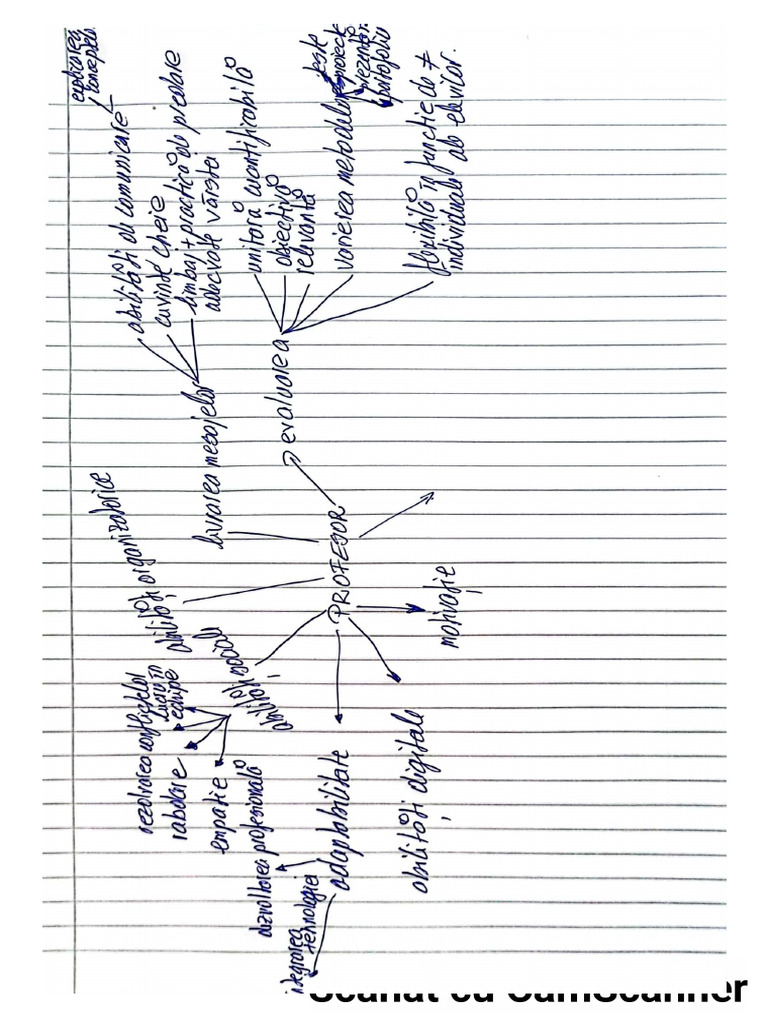 explicarea
conceptelor
abilități de comunicare
cuvinte cheie
limbaj + practică de predare
adecvate vârstei
livrarea mesajelor
unitară cuantificabilă
obiectivă
relevantă
varierea metodelor
teste
proiecte
prezentări
portofoliu
flexibilă în funcție de ≠
individuale ale elevilor.
evaluarea
abilități organizatorice
PROFESOR
motivație
abilități sociale
rezolvarea conflictelor
lucru în
echipe
răbdare
empatie
dezvoltarea profesională
adaptabilitate
integrarea
tehnologiei
abilități digitale
Scanat cu CamScanner